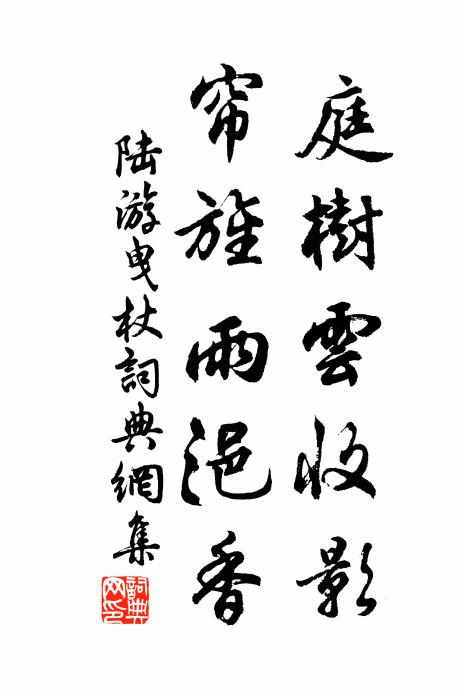 庭樹雲收影
帘旌雨浥香
陆游曳杖詞典網集
詞典網印